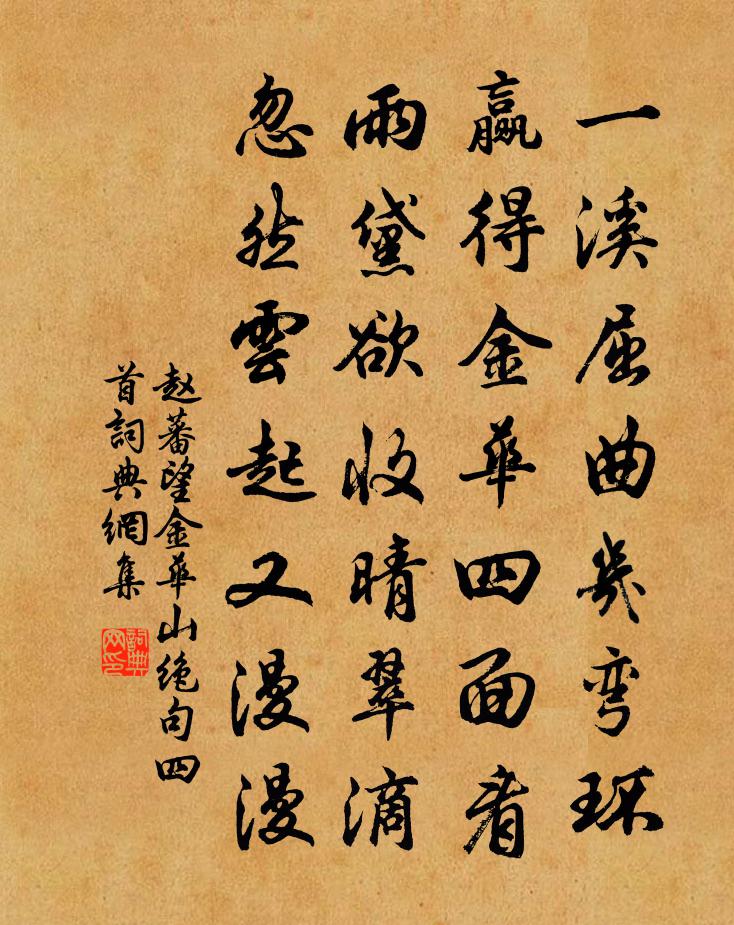 一溪屈曲幾彎环
赢得金華四面看
雨黛欲收晴翠滴
忽然雲起又漫漫
赵蕃望金華山绝句四
首詞典網集
詞典网印